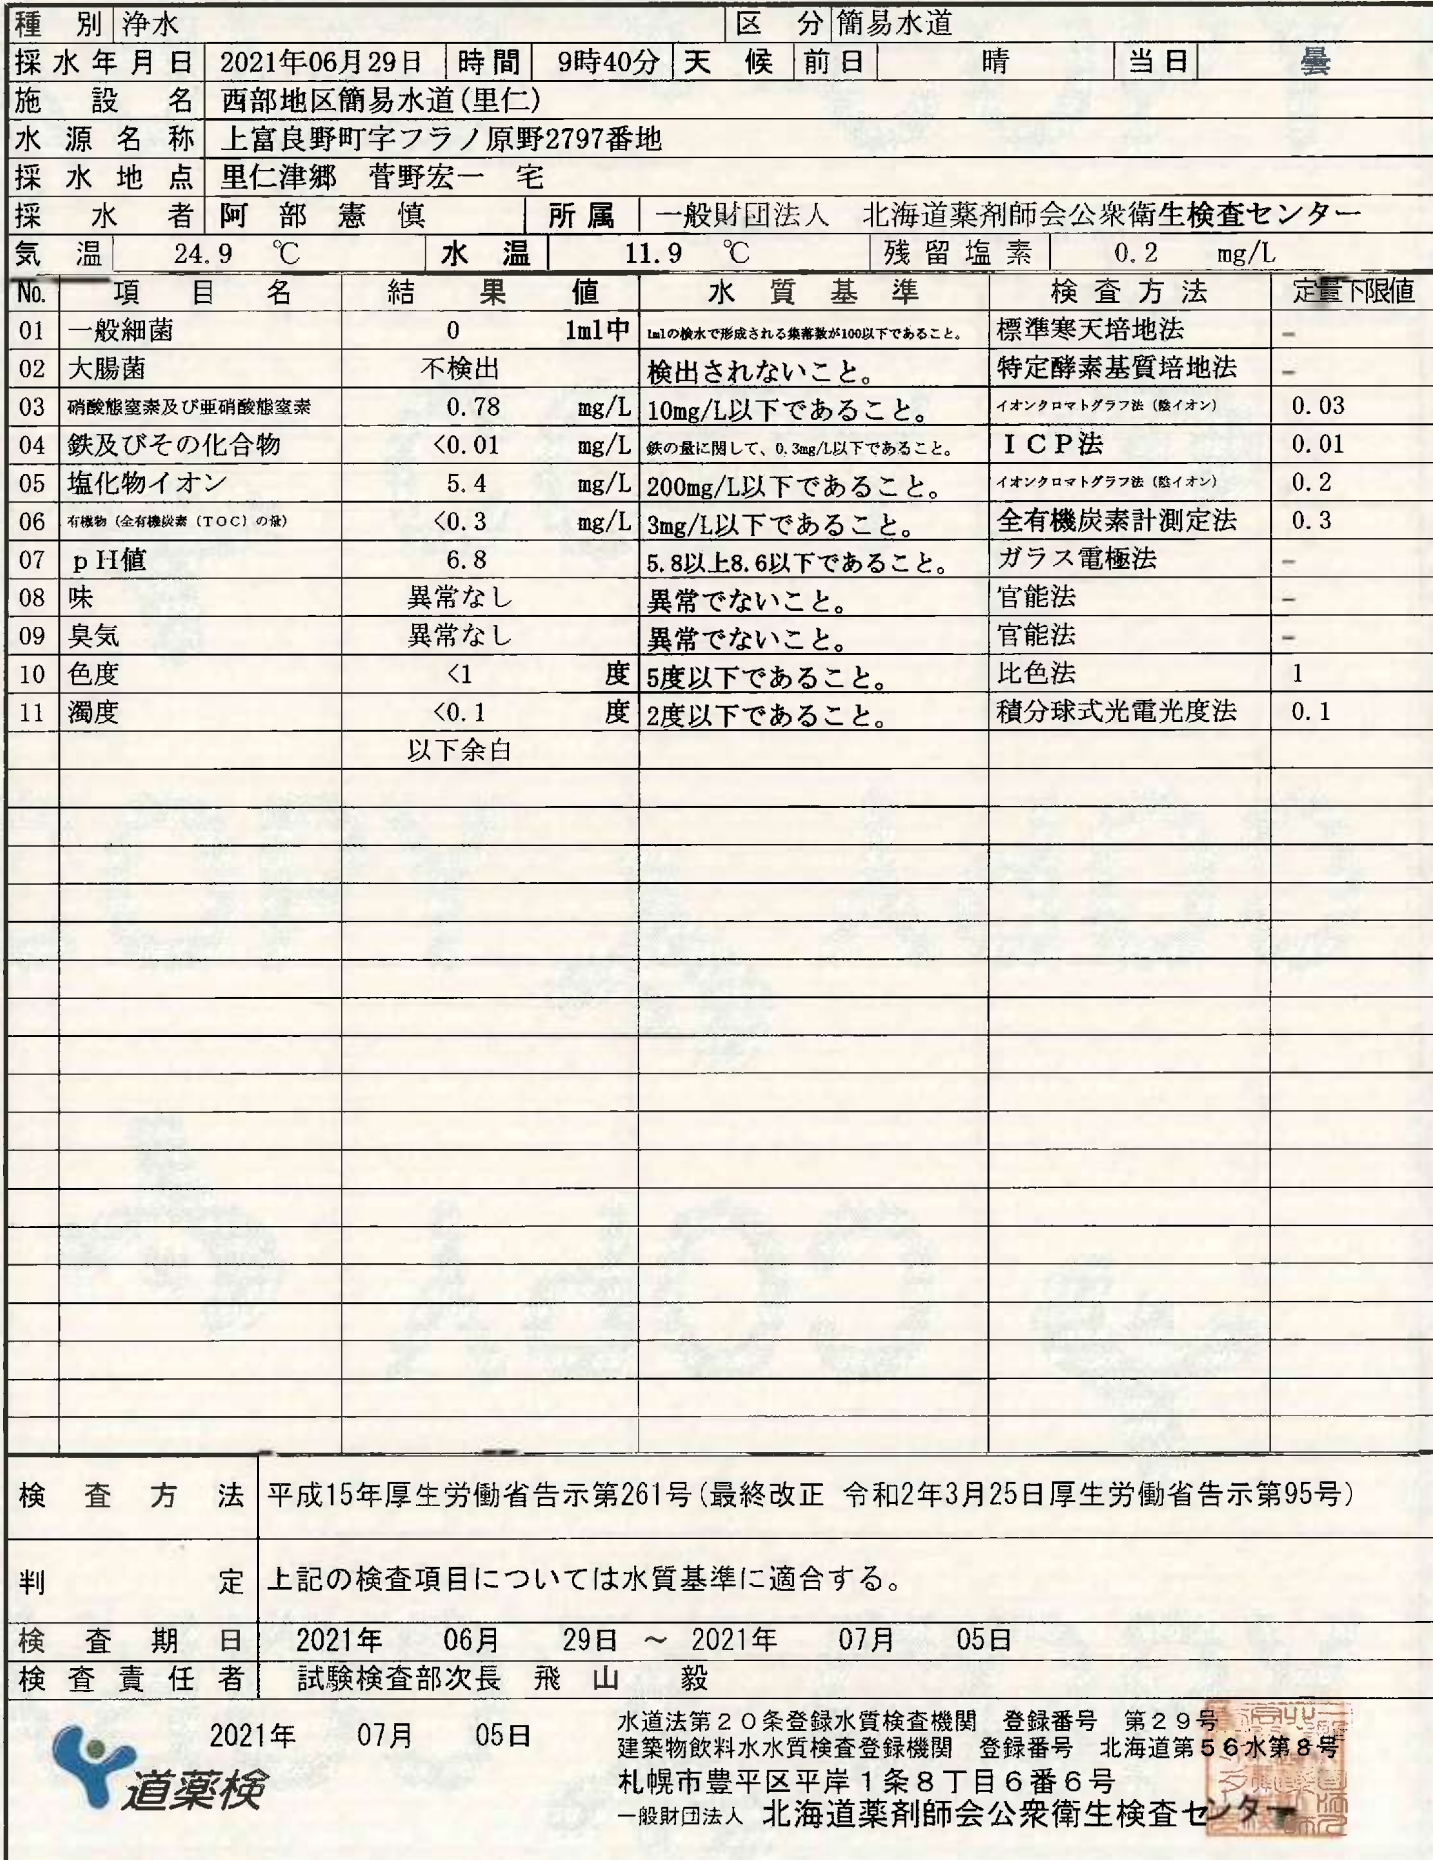 種 別 浄水 区 分 簡易水道
採水年月日 2021年06月29日 時間 9時40分 天 候 前日 晴 当日 曇
施 設 名 西部地区簡易水道(里仁)
水 源 名 称 上富良野町字フラノ原野2797番地
採 水 地 点 里仁津郷 菅野宏一 宅
採 水 者 阿 部 憲 慎 所属 一般財団法人 北海道薬剤師会公衆衛生検査センター
気 温 24.9 ℃ 水 温 11.9 ℃ 残留塩素 0.2 mg/L
No. 項 目 名 結 果 値 水 質 基 準 検査方法 定量下限値
01 一般細菌 0 1ml中 1mlの検水で形成される集落数が100以下であること。 標準寒天培地法 -
02 大腸菌 不検出 検出されないこと。 特定酵素基質培地法 -
03 硝酸態窒素及び亜硝酸態窒素 0.78 mg/L 10mg/L以下であること。 イオンクロマトグラフ法（陰イオン） 0.03
04 鉄及びその化合物 <0.01 mg/L 鉄の量に関して、0.3mg/L以下であること。 ICP法 0.01
05 塩化物イオン 5.4 mg/L 200mg/L以下であること。 イオンクロマトグラフ法（陰イオン） 0.2
06 有機物（全有機炭素（TOC）の量） <0.3 mg/L 3mg/L以下であること。 全有機炭素計測定法 0.3
07 pH値 6.8 5.8以上8.6以下であること。 ガラス電極法 -
08 味 異常なし 異常でないこと。 官能法 -
09 臭気 異常なし 異常でないこと。 官能法 -
10 色度 <1 度 5度以下であること。 比色法 1
11 濁度 <0.1 度 2度以下であること。 積分球式光電光度法 0.1
以下余白
検 査 方 法 平成15年厚生労働省告示第261号(最終改正 令和2年3月25日厚生労働省告示第95号)
判 定 上記の検査項目については水質基準に適合する。
検 査 期 日 2021年 06月 29日 ～ 2021年 07月 05日
検査責任者 試験検査部次長 飛 山 毅
2021年 07月 05日
水道法第20条登録水質検査機関 登録番号 第29号
建築物飲料水水質検査登録機関 登録番号 北海道第56水第8号
札幌市豊平区平岸1条8丁目6番6号
一般財団法人 北海道薬剤師会公衆衛生検査センター
道薬検